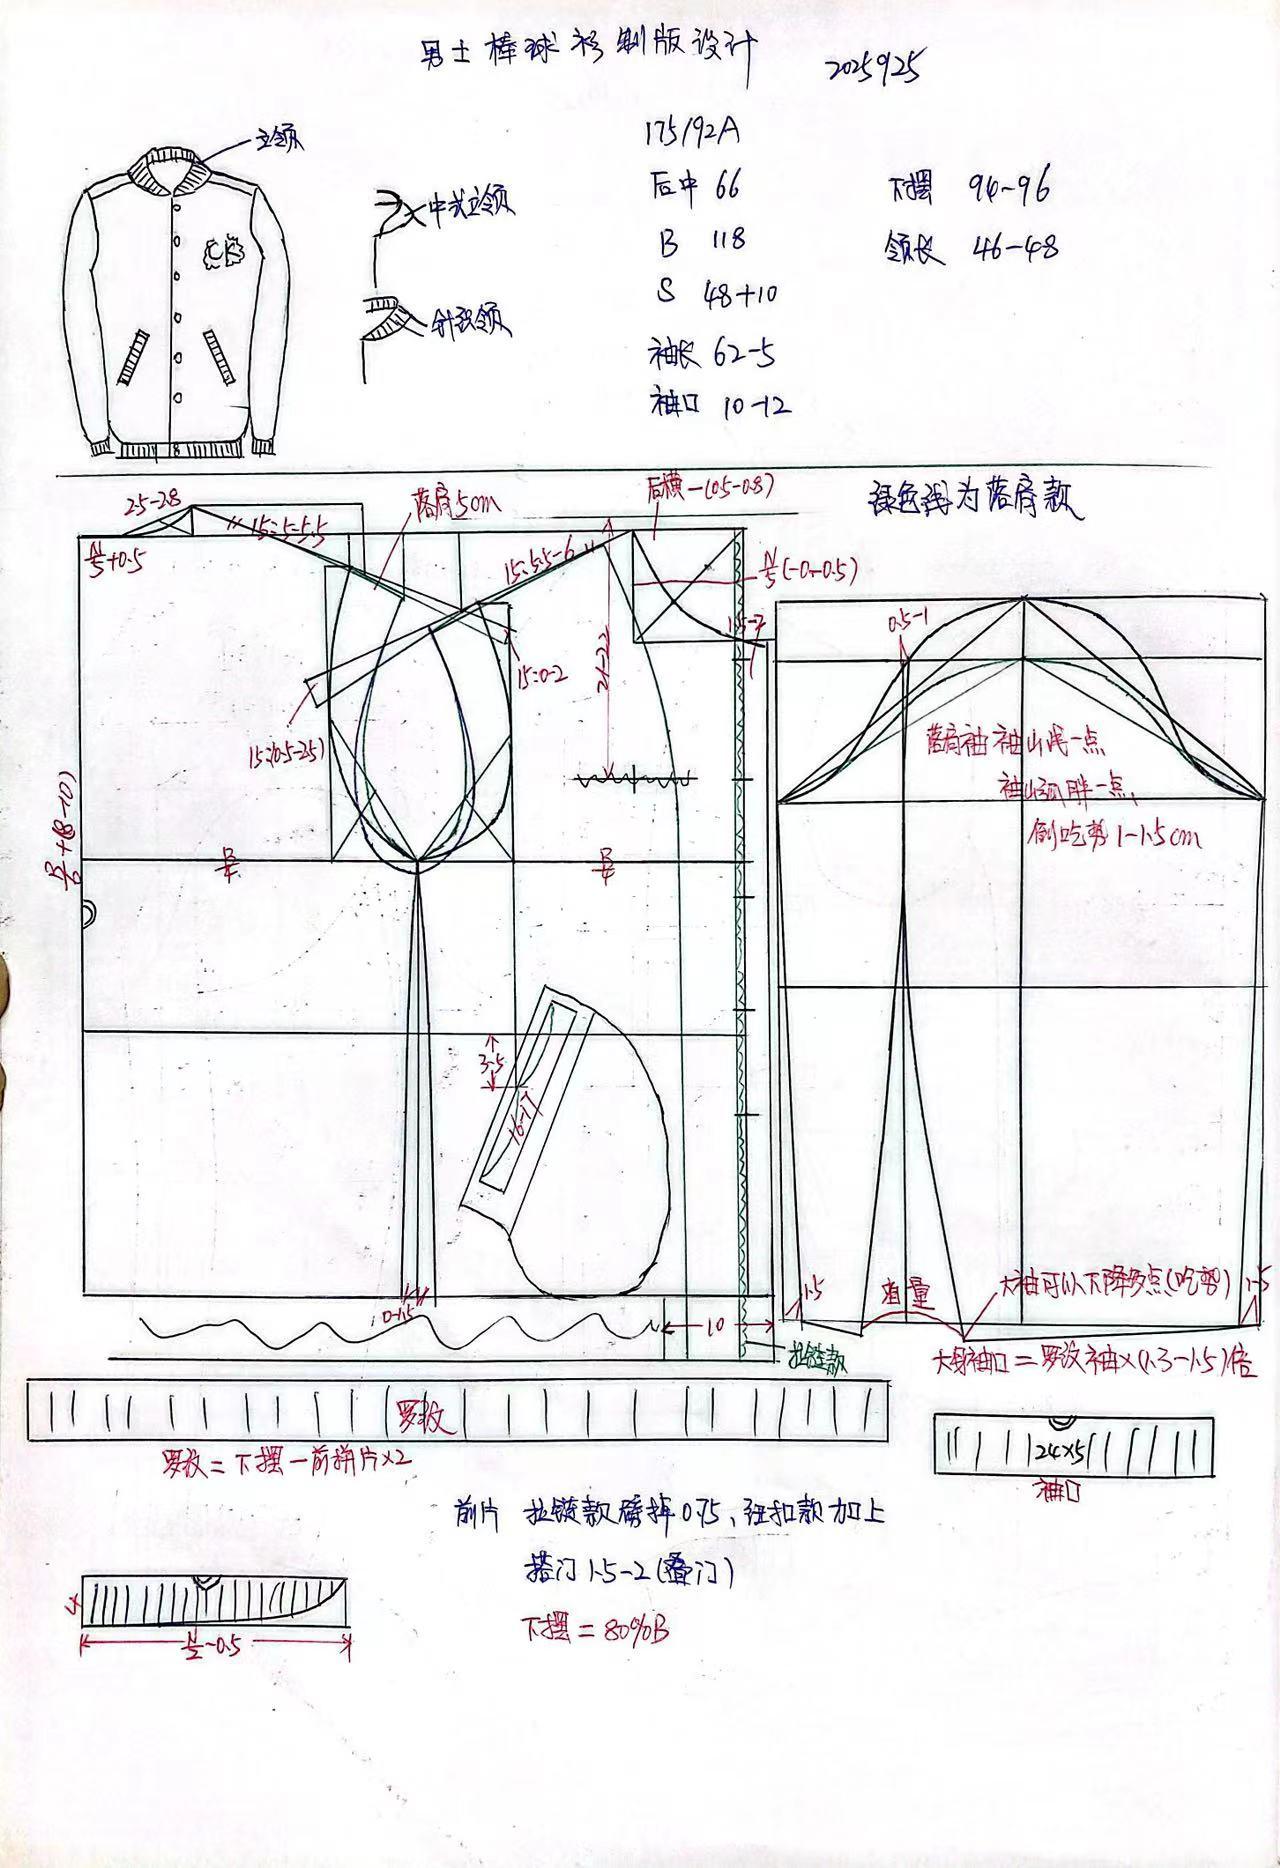 男士棒球衫制版设计
2025925
立领
中式立领
针织领
CK
175/92A
后中 66
B 118
S 48+10
袖长 62-5
袖口 10-12
下摆 94-96
领长 46-48
绿色线为落肩款
2.5-2.8
N/5+0.5
15:5-5.5
落肩5cm
15:5.5-6
后横-(0.5-0.8)
N/5(-0-0.5)
1.5-2
21-22
15:0-2
15:(0.5-2.5)
B/6+(8-10)
B/4
B/4
3-5
16-17
0-1.5
10
拉链款
0.5-1
落肩袖袖山浅一点
袖山弧胖一点
倒吃势1-1.5cm
1.5
省量
大袖可以下降多点(吃势)
1.5
大身袖口=罗纹袖×(1.3-1.5)倍
罗纹
罗纹=下摆-前拼片×2
24×5
袖口
前片 拉链款劈掉0.75、纽扣款加上
搭门1.5-2(叠门)
下摆=80%B
4
N/2-0.5